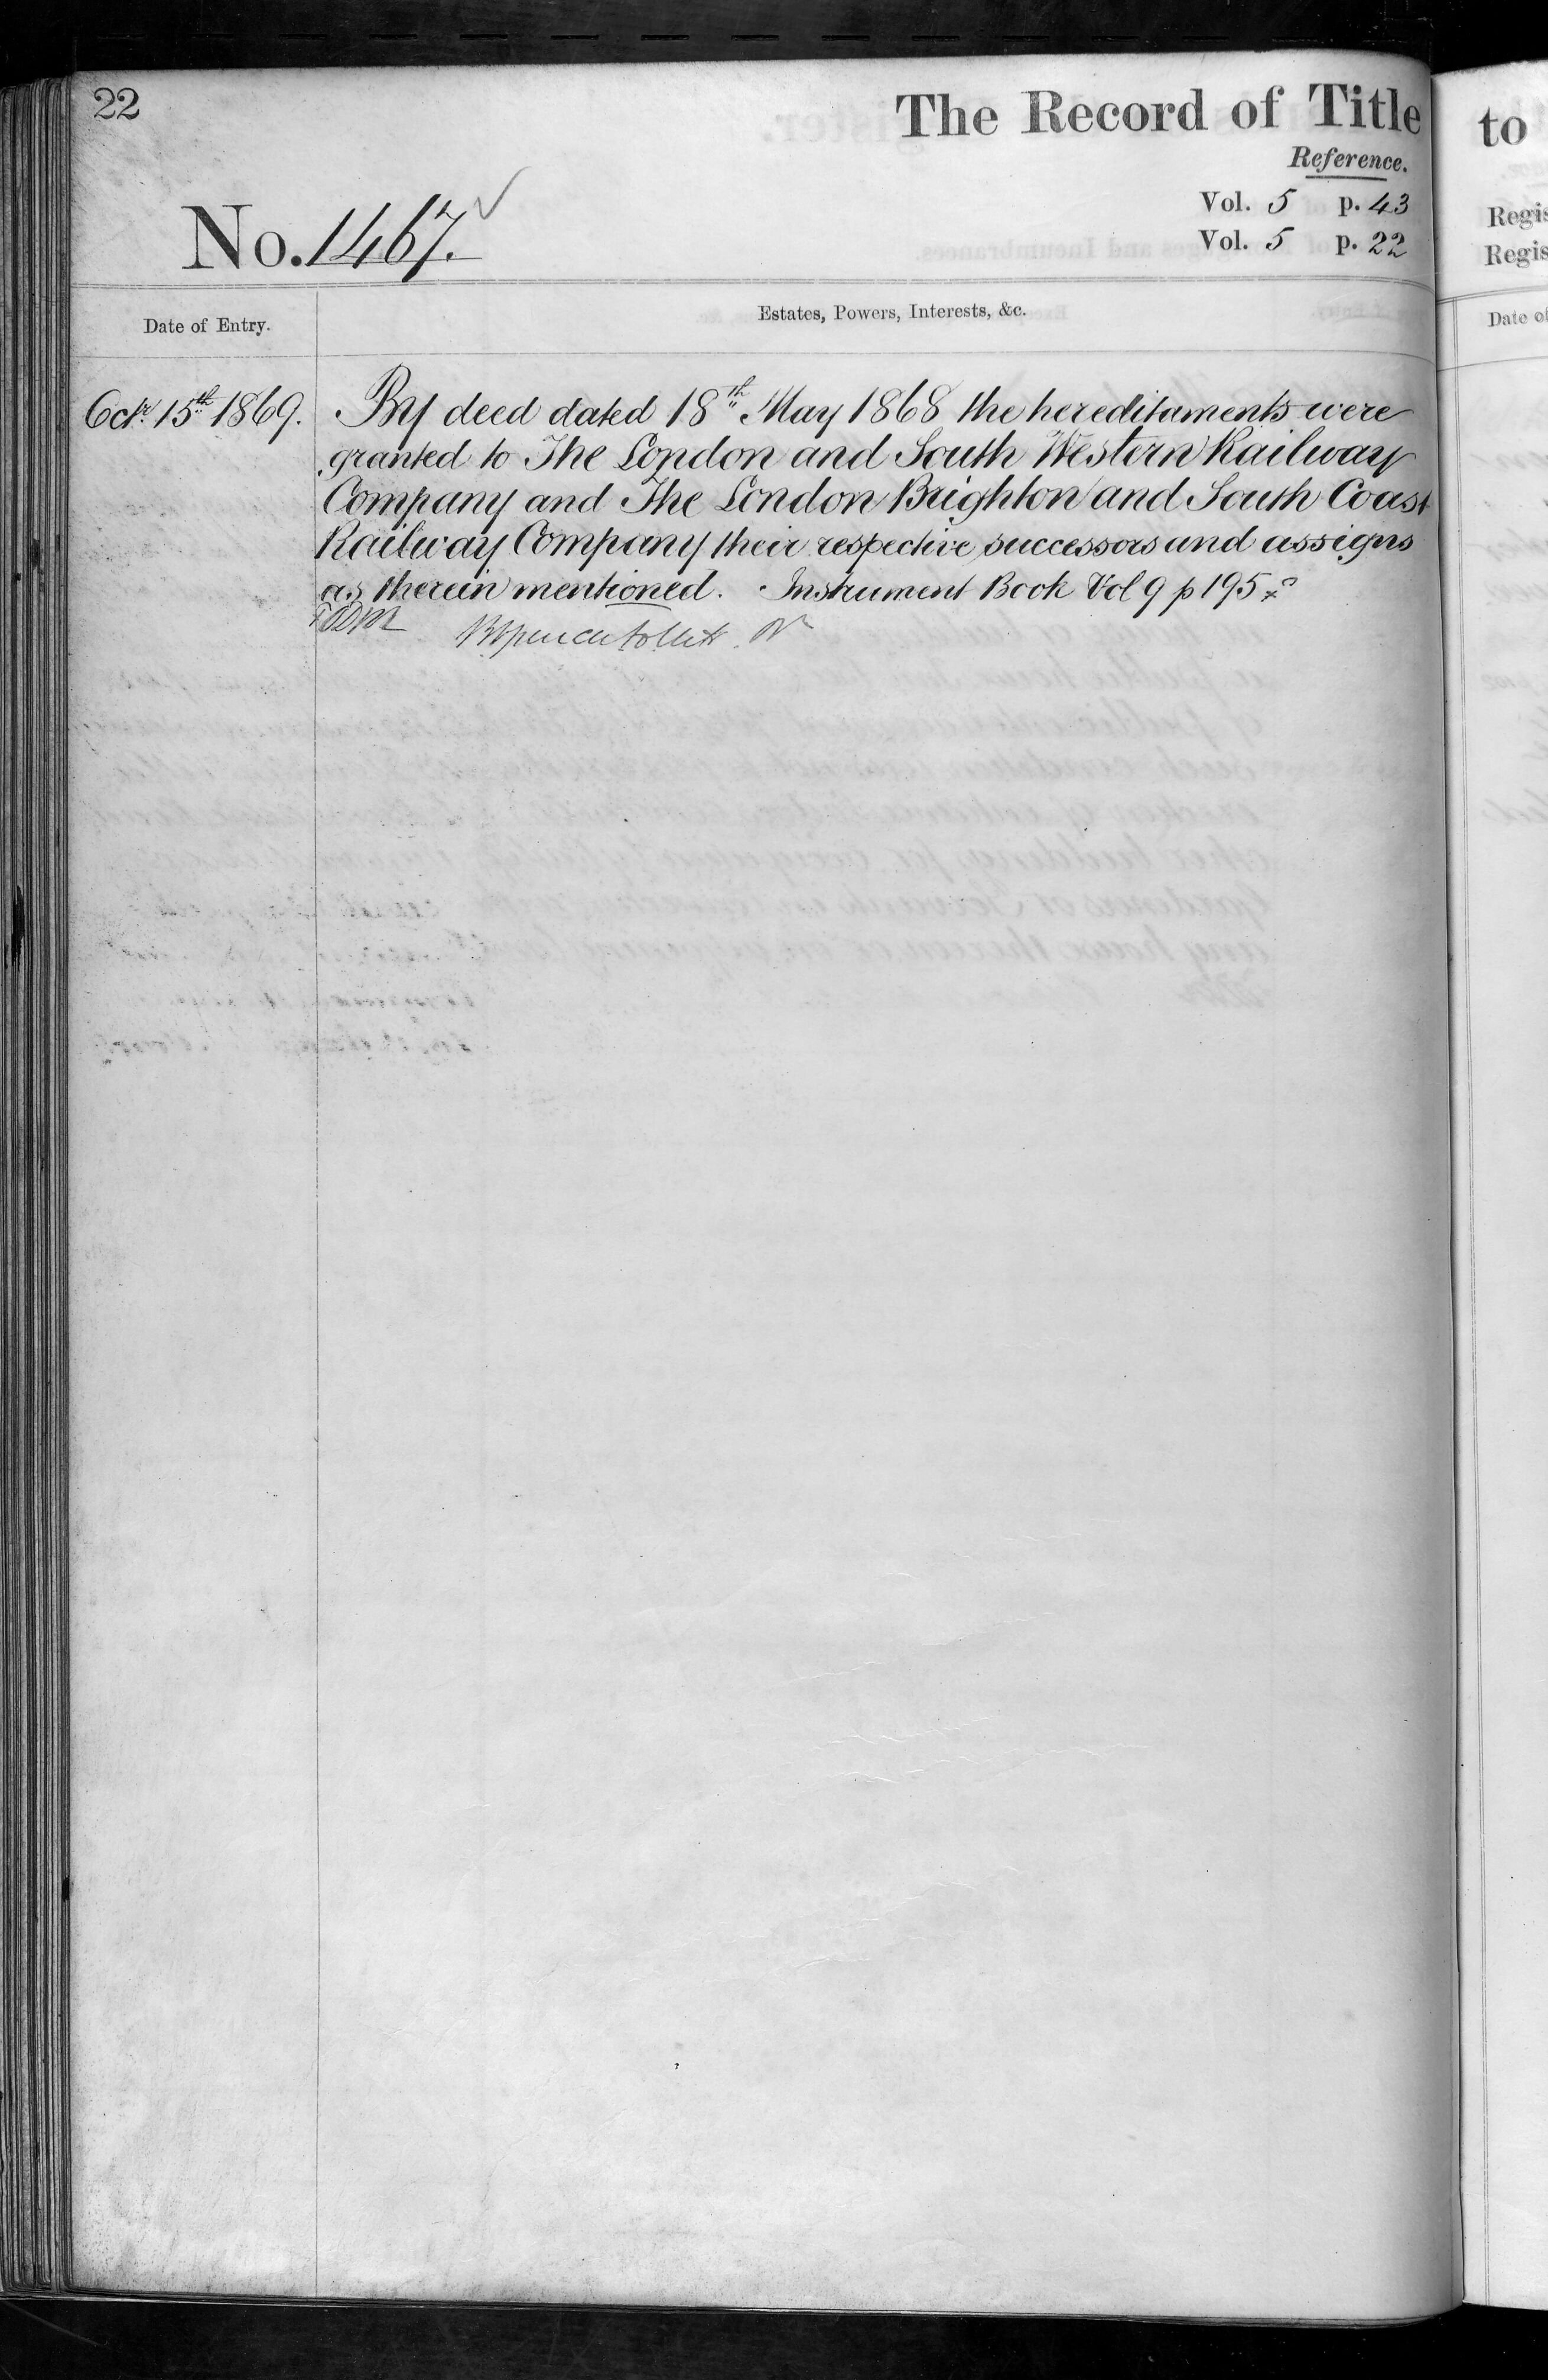 22
The Record of Title
Reference.
Vol. 5 p. 43
Vol. 5 p. 22
No. 1467.
Date of Entry.
Estates, Powers, Interests, &c.
Octr. 15th 1869.
By deed dated 18th May 1868 the hereditaments were
granted to The London and South Western Railway
Company and The London Brighton and South Coast
Railway Company their respective successors and assigns
as therein mentioned. Instrument Book Vol 9 p 195
to
Regis
Regis
Date of